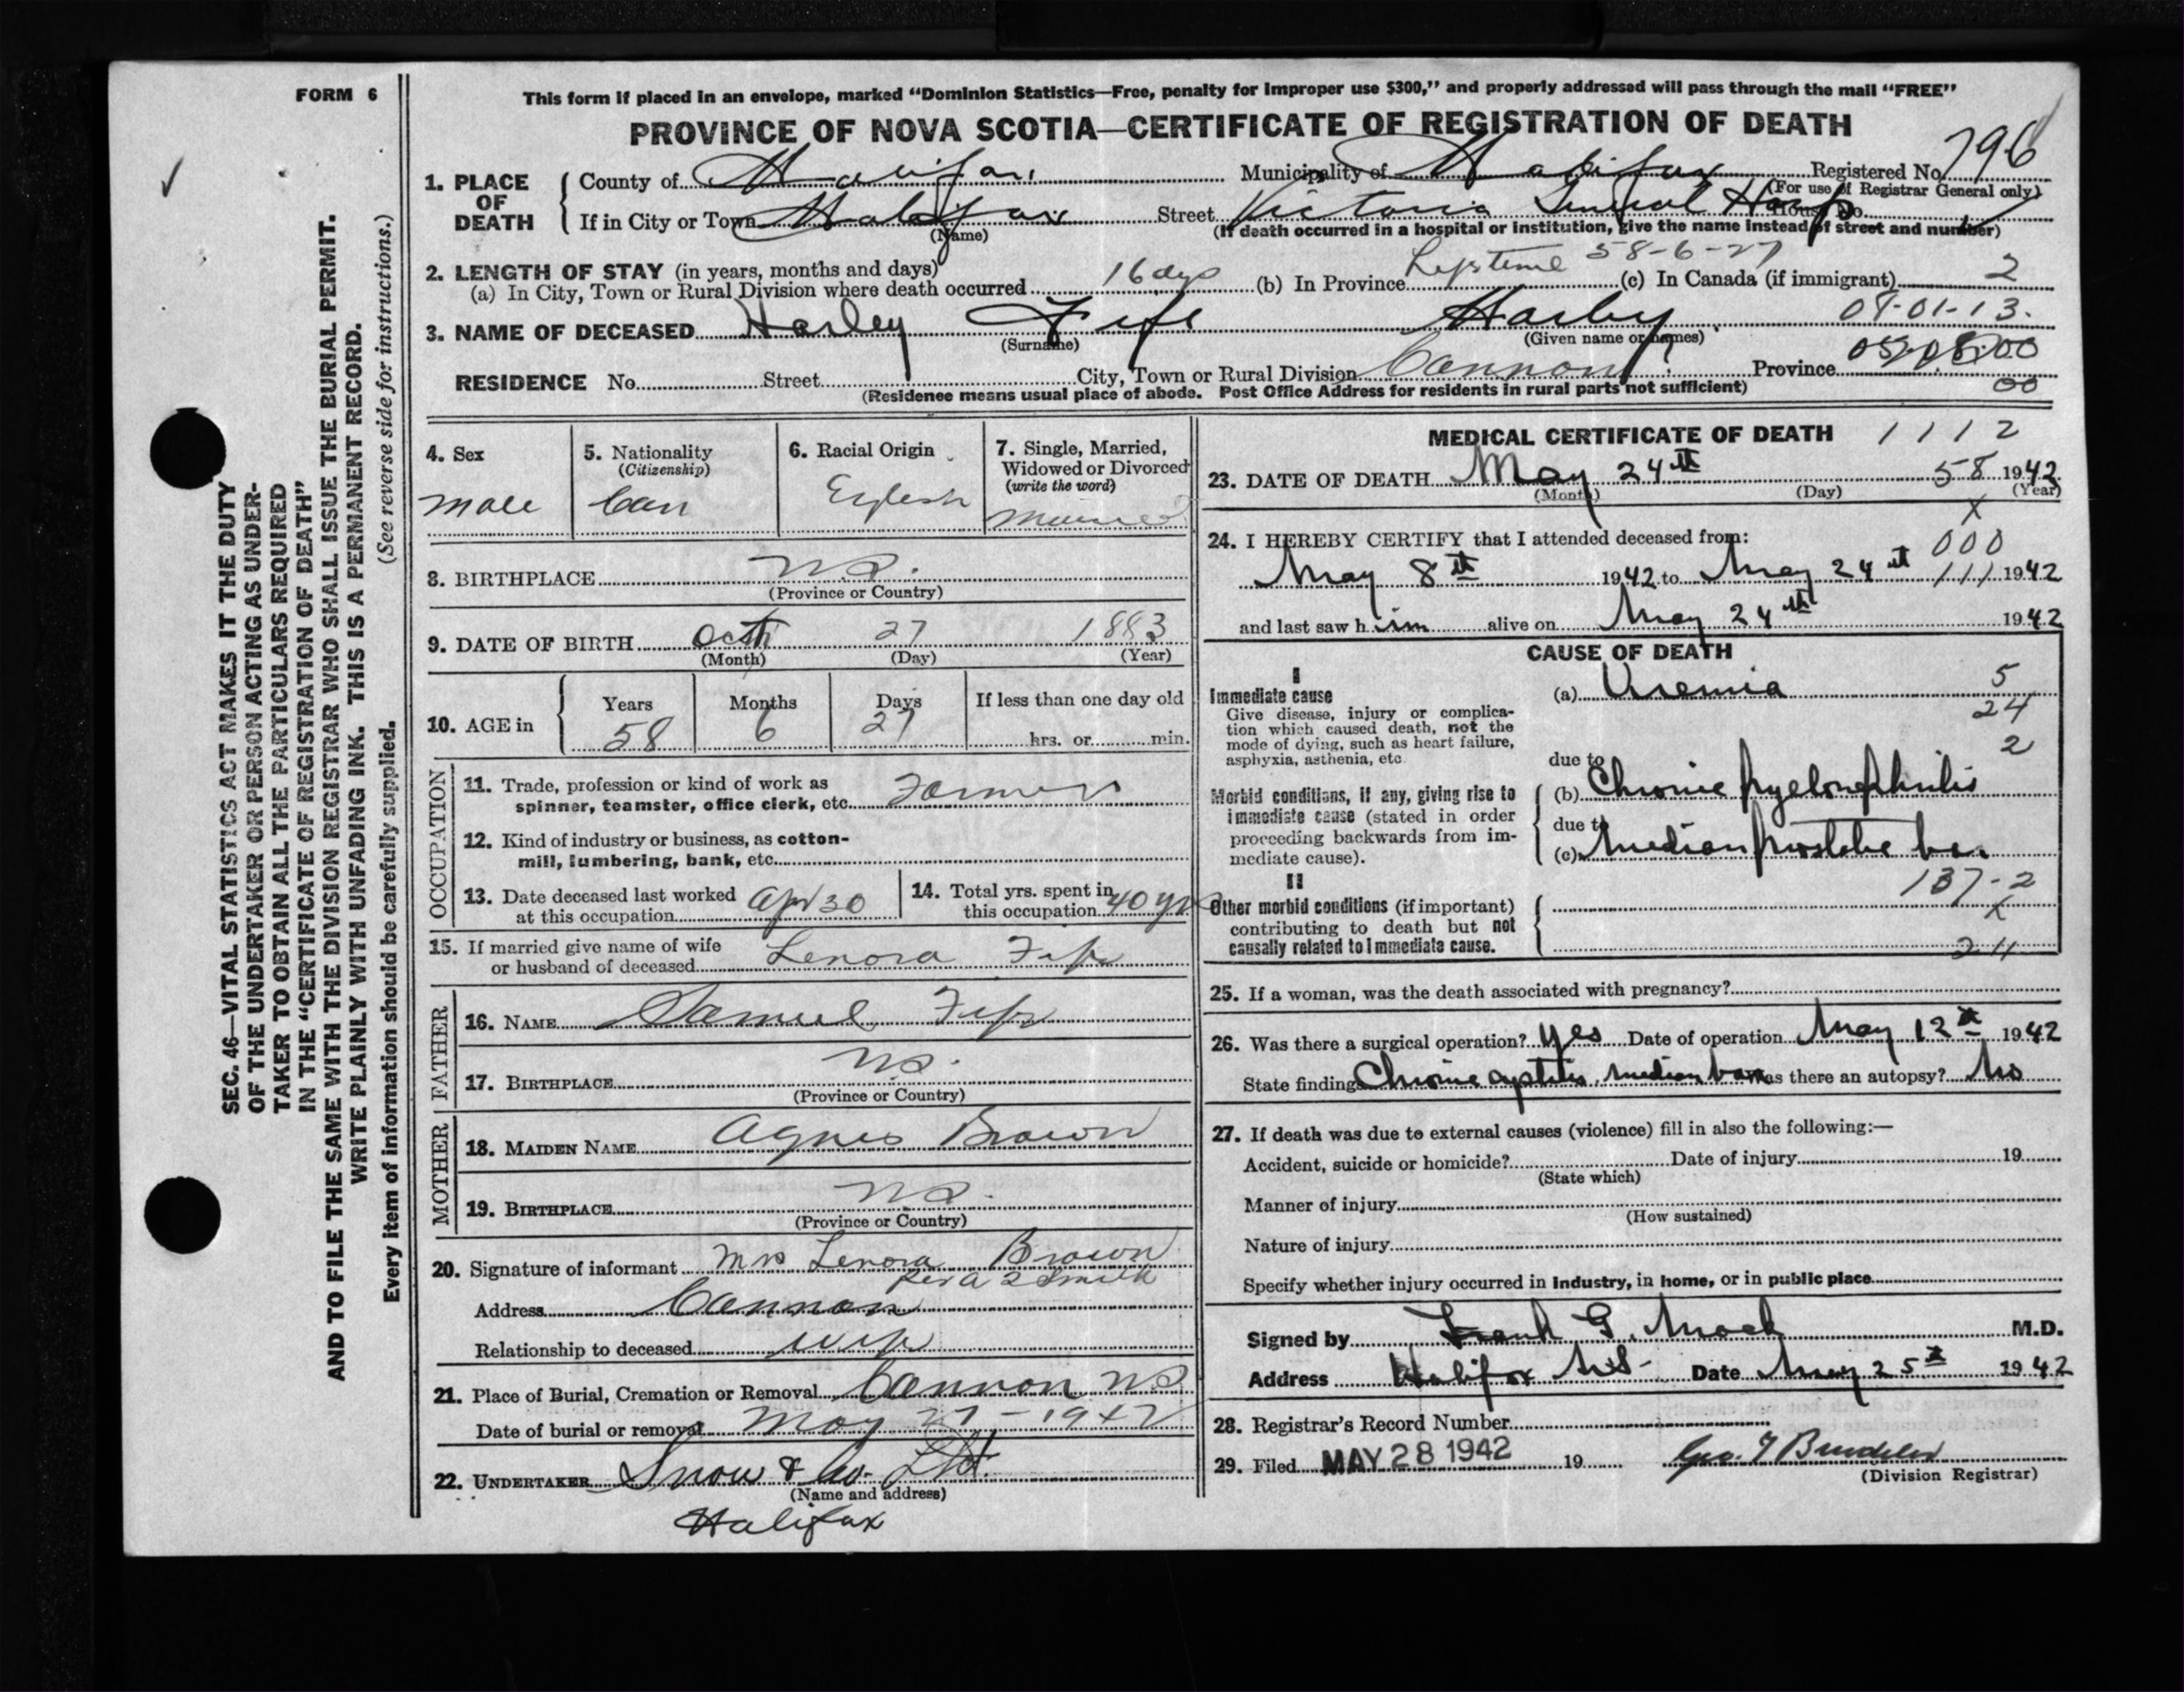 FORM 6
This form if placed in an envelope, marked "Dominion Statistics—Free, penalty for improper use $300," and properly addressed will pass through the mail "FREE"
PROVINCE OF NOVA SCOTIA—CERTIFICATE OF REGISTRATION OF DEATH
796
1. PLACE OF DEATH
County of Halifax Municipality of Halifax Registered No.
(For use of Registrar General only)
If in City or Town Halifax Street Victoria General Hosp House No.
(Name) (If death occurred in a hospital or institution, give the name instead of street and number)
2. LENGTH OF STAY (in years, months and days)
(a) In City, Town or Rural Division where death occurred 16 dys (b) In Province Lifetime 58-6-27 (c) In Canada (if immigrant) 2
3. NAME OF DECEASED Harley Fife Harley
(Surname) (Given name or names)
RESIDENCE No. Street City, Town or Rural Division Cannon Province
(Residence means usual place of abode. Post Office Address for residents in rural parts not sufficient)
00
4. Sex
male
5. Nationality
(Citizenship)
Can
6. Racial Origin
English
7. Single, Married,
Widowed or Divorced
(write the word)
Married
8. BIRTHPLACE N.S.
(Province or Country)
9. DATE OF BIRTH Octh 27 1883
(Month) (Day) (Year)
10. AGE in
Years Months Days If less than one day old
58 6 27 hrs. or min.
OCCUPATION
11. Trade, profession or kind of work as
spinner, teamster, office clerk, etc. Farmer
12. Kind of industry or business, as cotton-
mill, lumbering, bank, etc.
13. Date deceased last worked
at this occupation Apr 30
14. Total yrs. spent in
this occupation 40 yrs
15. If married give name of wife
or husband of deceased Lenora Fife
FATHER
16. NAME Samuel Fife
17. BIRTHPLACE N.S.
(Province or Country)
MOTHER
18. MAIDEN NAME Agnes Brown
19. BIRTHPLACE N.S.
(Province or Country)
20. Signature of informant Mrs Lenora Brown
Per A
Address Cannon
Relationship to deceased wife
21. Place of Burial, Cremation or Removal Cannon N.S
Date of burial or removal May 27 - 1942
22. UNDERTAKER Snow & Co. Ltd.
(Name and address)
Halifax
MEDICAL CERTIFICATE OF DEATH 1112
23. DATE OF DEATH May 24th 58 1942
(Month) (Day) (Year)
X
24. I HEREBY CERTIFY that I attended deceased from:
000
May 8th 1942 to May 24th 111 1942
and last saw him alive on May 24th 1942
CAUSE OF DEATH
I
Immediate cause
Give disease, injury or complica-
tion which caused death, not the
mode of dying, such as heart failure,
asphyxia, asthenia, etc
(a) Uremia 5
24
2
due to
Morbid conditions, if any, giving rise to
immediate cause (stated in order
proceeding backwards from im-
mediate cause).
(b) Chronic pyelonephritis
due to
(c) Median prostatic bar
137-2
II
Other morbid conditions (if important)
contributing to death but not
causally related to immediate cause.
25. If a woman, was the death associated with pregnancy?
26. Was there a surgical operation? Yes Date of operation May 12th 1942
State findings Chronic cystitis, median bar Was there an autopsy? No
27. If death was due to external causes (violence) fill in also the following:—
Accident, suicide or homicide? Date of injury 19
(State which)
Manner of injury
(How sustained)
Nature of injury
Specify whether injury occurred in industry, in home, or in public place
Signed by Frank G. Mack M.D.
Address Halifax N.S. Date May 25th 1942
28. Registrar's Record Number
29. Filed MAY 28 1942 19
(Division Registrar)
SEC. 46—VITAL STATISTICS ACT MAKES IT THE DUTY
OF THE UNDERTAKER OR PERSON ACTING AS UNDER-
TAKER TO OBTAIN ALL THE PARTICULARS REQUIRED
IN THE "CERTIFICATE OF REGISTRATION OF DEATH"
AND TO FILE THE SAME WITH THE DIVISION REGISTRAR WHO SHALL ISSUE THE BURIAL PERMIT.
WRITE PLAINLY WITH UNFADING INK. THIS IS A PERMANENT RECORD.
Every item of information should be carefully supplied. (See reverse side for instructions.)